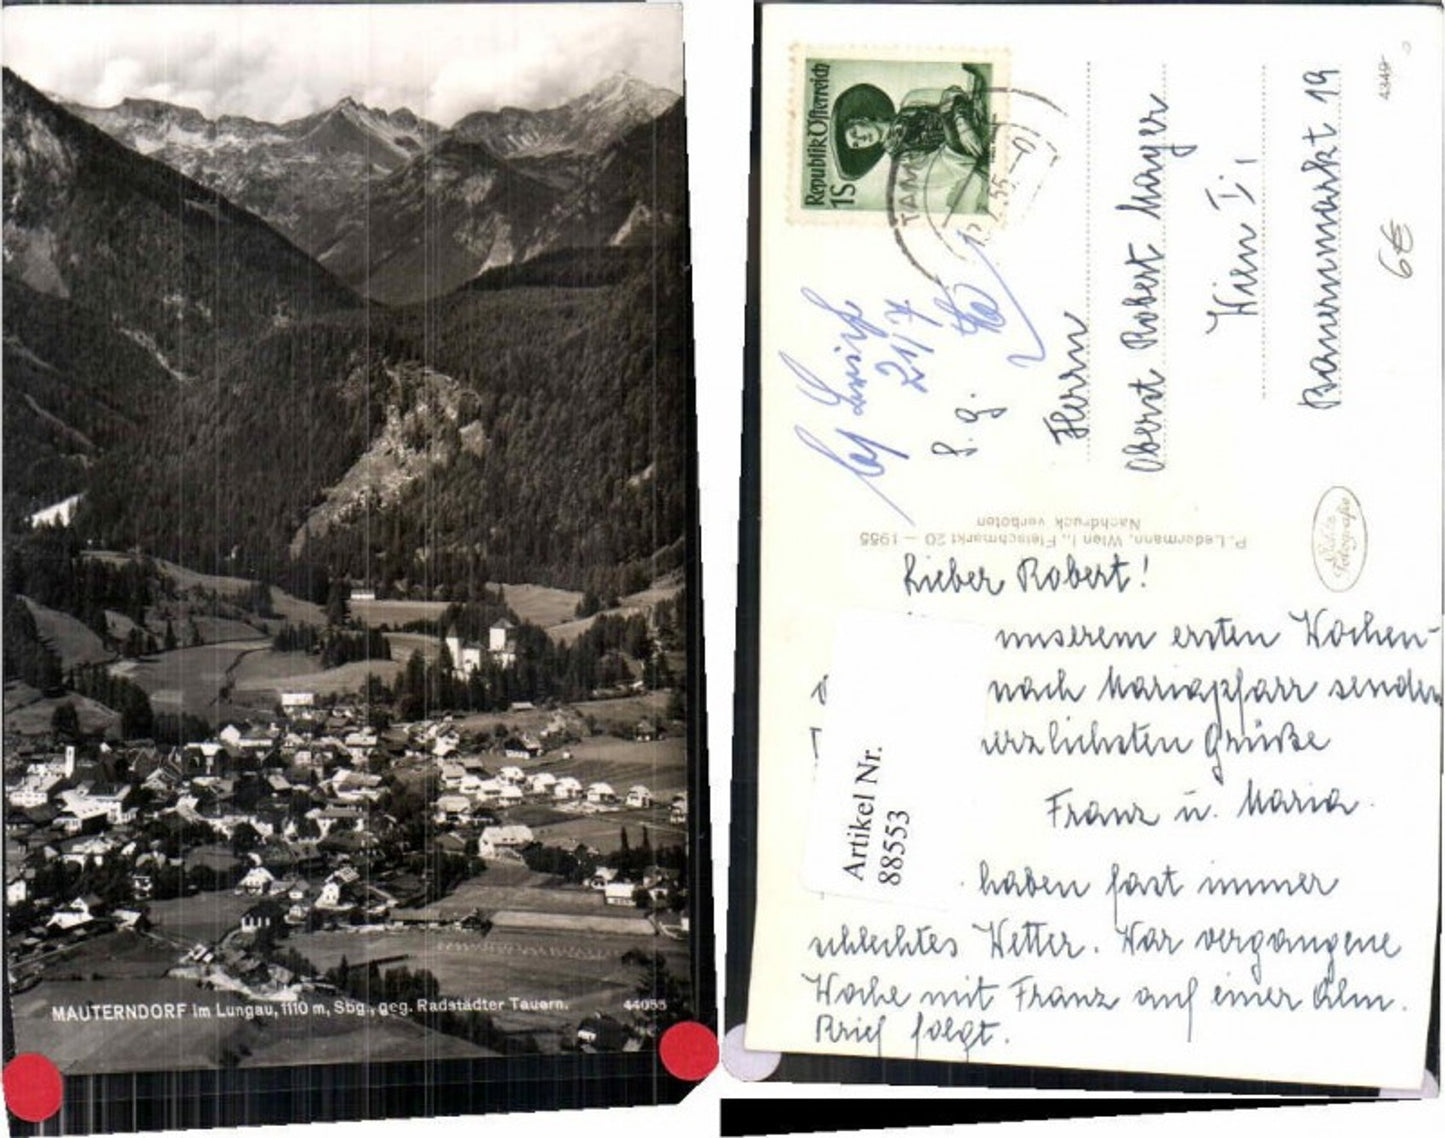 MAUTERNDORF im Lungau, 1110 m, Sbg., geg. Radstädter Tauern.
44055
Republik Österreich
1S
TAM
55
21/7
S. g.
Herrn
Oberst Robert Mayer
Wien I,
Bauernmarkt 19
4349
6€
P. Ledermann, Wien I., Fleischmarkt 20 – 1955
Nachdruck verboten
Lieber Robert!
unserem ersten Wochen-
nach Mariapfarr senden
erzlichsten Grüße
Franz u. Maria.
haben fast immer
schlechtes Wetter. War vergangene
Woche mit Franz auf einer Alm.
Brief folgt.
Artikel Nr.
88553